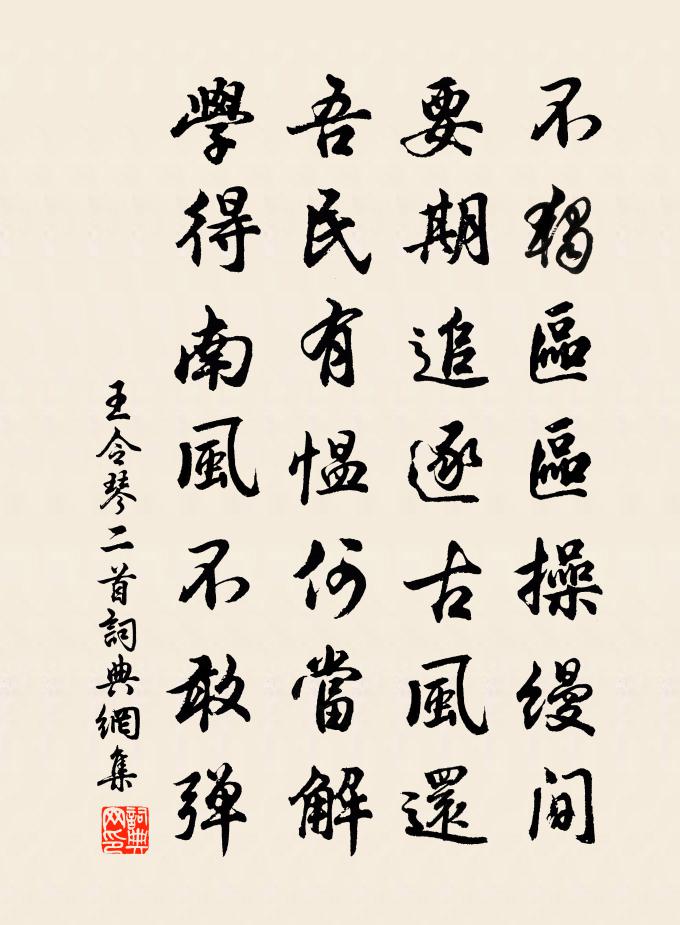 不獨區區操縵間
要期追逐古風還
吾民有愠何當解
學得南風不敢彈
王令琴二首詞典網集
詞典網印